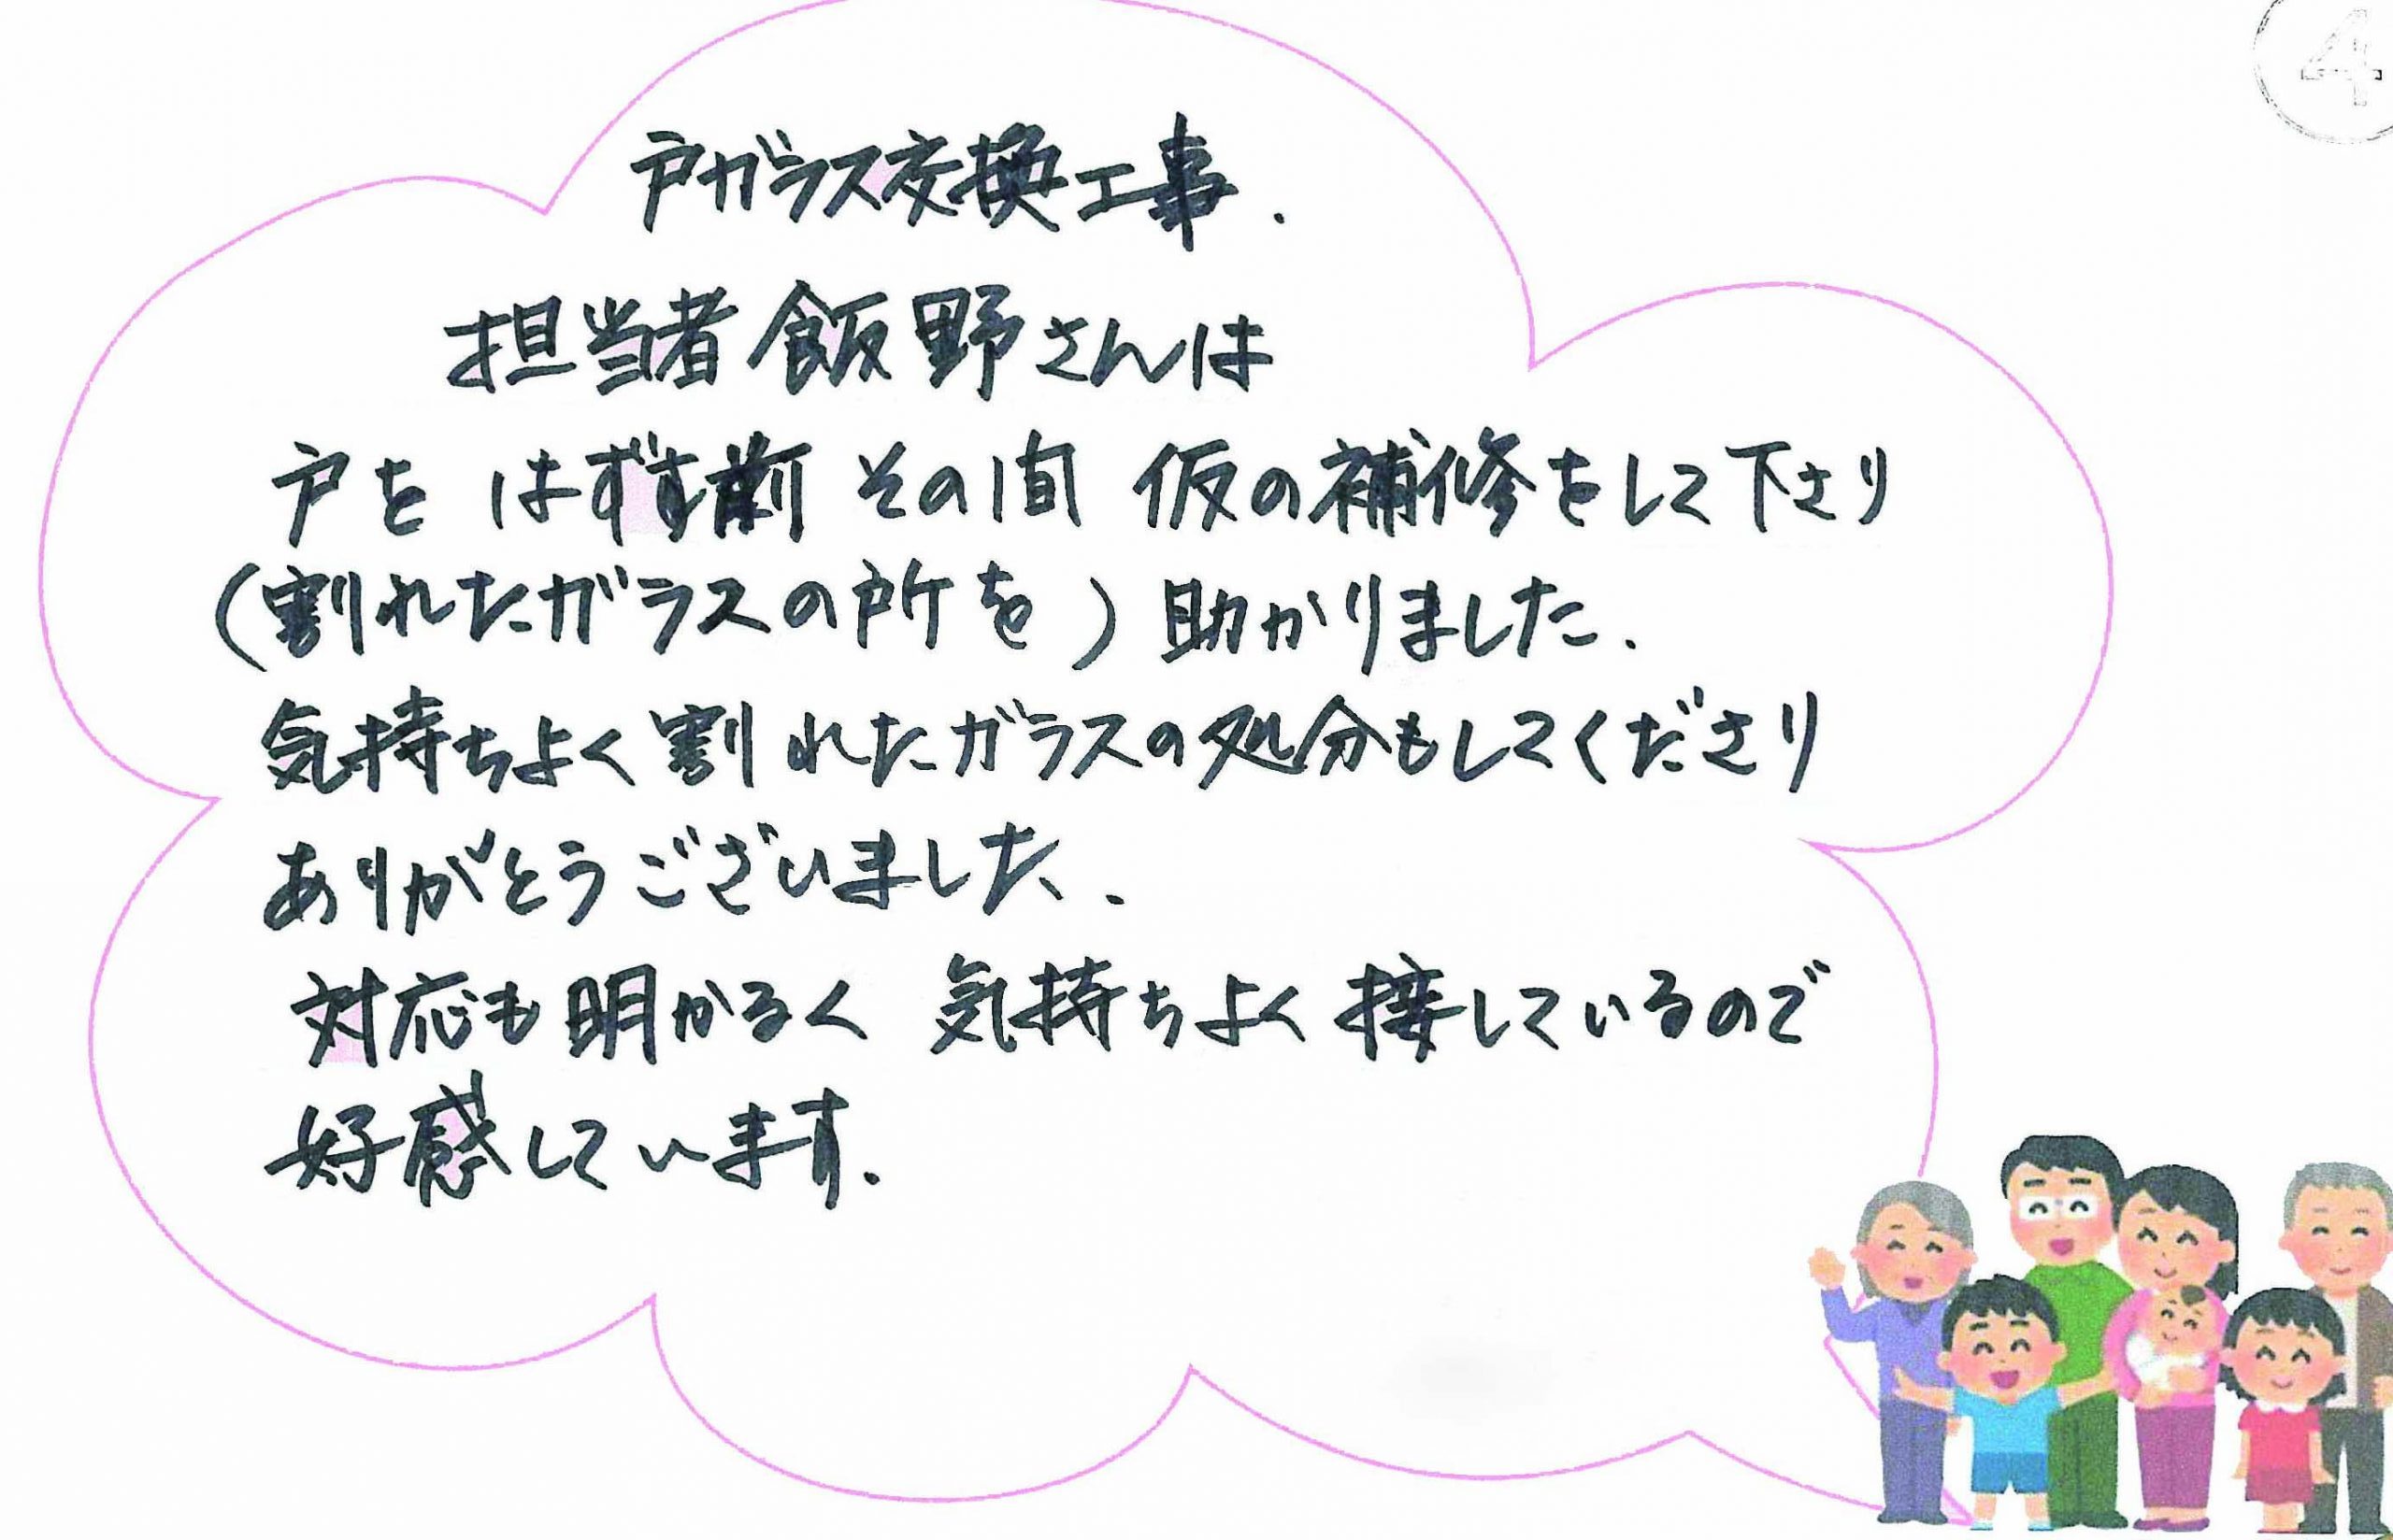 ④
戸ガラス交換工事.
担当者 飯野さんは
戸を はずす前 その間 仮の補修をして下さり
(割れたガラスの所を) 助かりました.
気持ちよく割れたガラスの処分もしてくださり
ありがとうございました.
対応も明かるく 気持ちよく接しているので
好感しています.